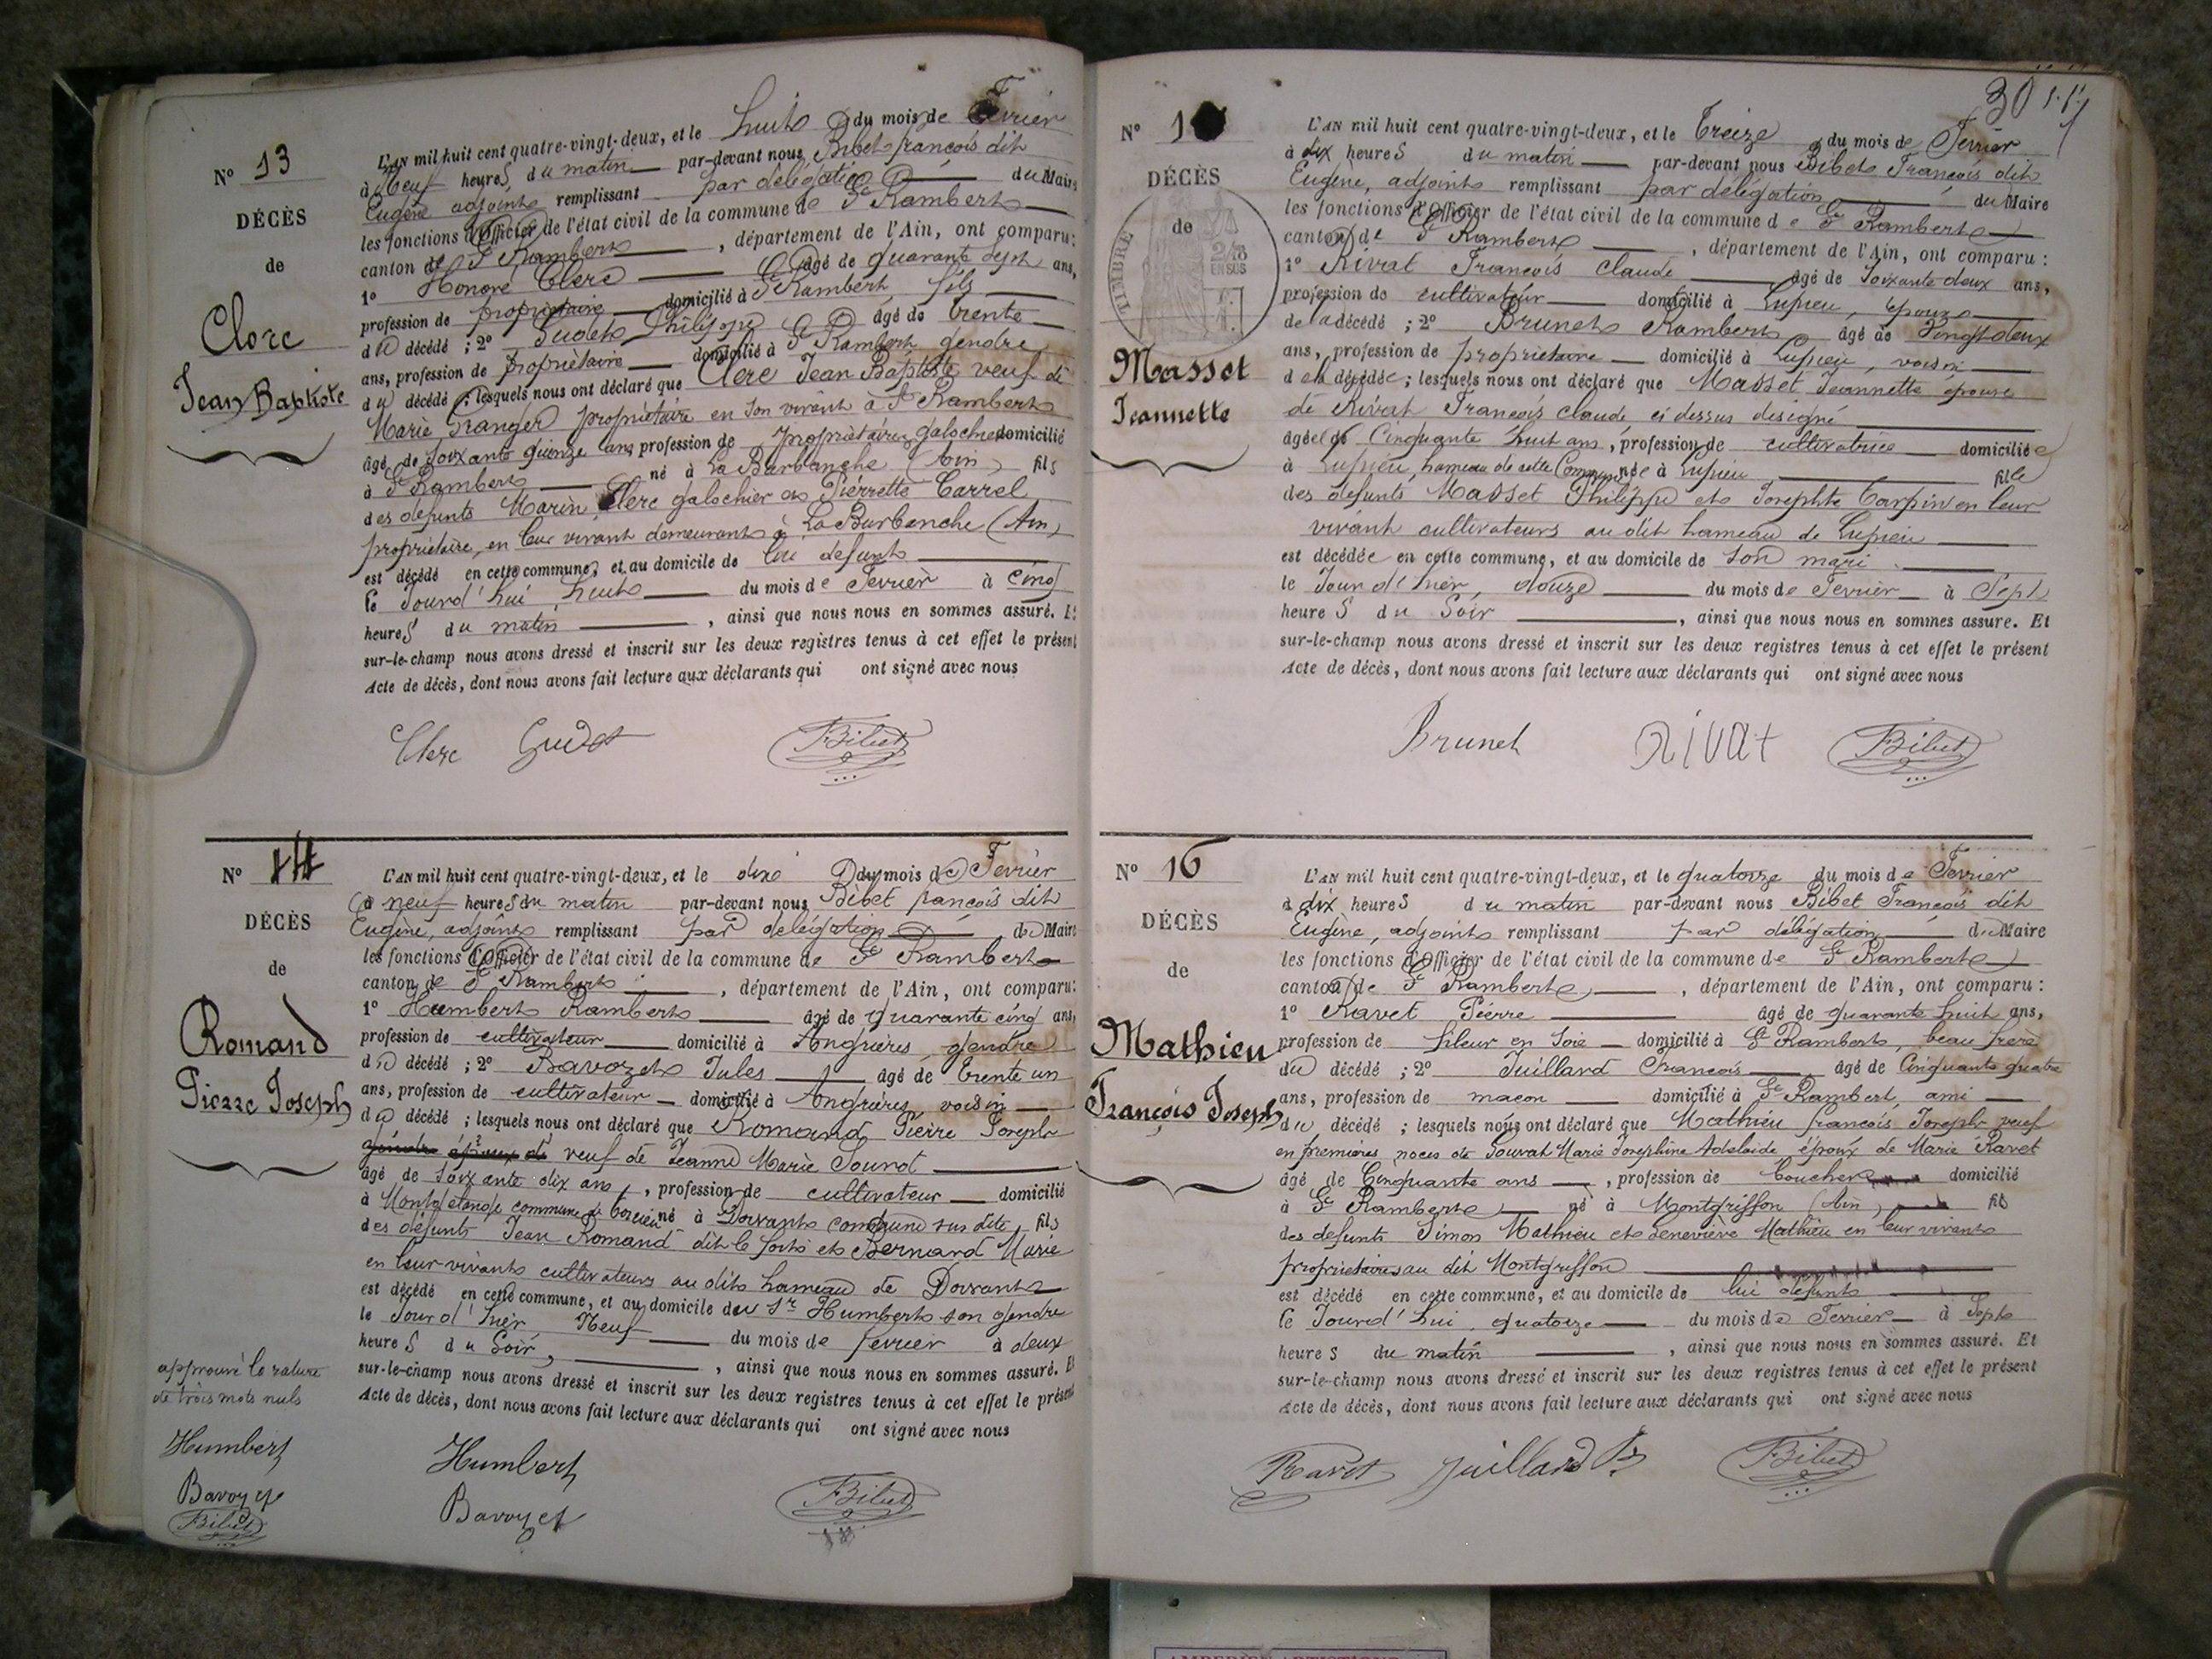 N° 13
DÉCÈS
de
Clerc
Jean Baptiste
L'AN mil huit cent quatre-vingt-deux, et le huit du mois de Fevrier
à Neuf heures du matin par-devant nous Bibet françois dit
Eugène adjoint remplissant par délégation du Maire
les fonctions d'Officier de l'état civil de la commune de St Rambert
canton de St Rambert, département de l'Ain, ont comparu:
1° Honoré Clerc âgé de quarante sept ans,
profession de propriétaire domicilié à St Rambert, fils
du décédé ; 2° Gudet Philippe âgé de trente
ans, profession de propriétaire domicilié à St Rambert gendre
du décédé ; lesquels nous ont déclaré que Clerc Jean Baptiste veuf de
Marie Granger propriétaire en son vivant à St Rambert
âgé de soixante quinze ans, profession de propriétaire galochier domicilié
à St Rambert né à La Burbanche (Ain) fils
des defunts Marin Clerc galochier et Pierrette Carrel
propriétaire, en leur vivant demeurant à La Burbanche (Ain)
est décédé en cette commune, et au domicile de lui defunt
le Jourd'hui huit du mois de Fevrier à cinq
heures du matin, ainsi que nous nous en sommes assuré. Et
sur-le-champ nous avons dressé et inscrit sur les deux registres tenus à cet effet le présent
Acte de décès, dont nous avons fait lecture aux déclarants qui ont signé avec nous
Clerc Gudet F. Bibet
N° 14
DÉCÈS
de
Romand
Pierre Joseph
L'AN mil huit cent quatre-vingt-deux, et le dix du mois de Fevrier
à neuf heures du matin par-devant nous Bibet françois dit
Eugène, adjoint remplissant par délégation du Maire
les fonctions d'Officier de l'état civil de la commune de St Rambert
canton de St Rambert, département de l'Ain, ont comparu:
1° Humbert Rambert âgé de quarante cinq ans,
profession de cultivateur domicilié à Angrières, gendre
du décédé ; 2° Bavozet Jules âgé de trente un
ans, profession de cultivateur domicilié à Angrières, voisin
du décédé ; lesquels nous ont déclaré que Romand Pierre Joseph
gendre époux de veuf de Jeanne Marie
âgé de soixante dix ans, profession de cultivateur domicilié
à commune de né à Dorvant commune sus dite, fils
des défunts Jean Romand dit le et Bernard Marie
en leur vivants cultivateurs au dit hameau de Dorvant
est décédé en cette commune, et au domicile du Sr Humbert son gendre
le Jour d'hier Neuf du mois de fevrier à deux
heures du Soir, ainsi que nous nous en sommes assuré. Et
sur-le-champ nous avons dressé et inscrit sur les deux registres tenus à cet effet le présent
Acte de décès, dont nous avons fait lecture aux déclarants qui ont signé avec nous
approuvé la rature
de trois mots nuls
Humbert
Bavozet
F. Bibet
Humbert
Bavozet
F. Bibet
30
N° 1
DÉCÈS
de
TIMBRE
2/10
EN SUS
Masset
Jeannette
L'AN mil huit cent quatre-vingt-deux, et le Treize du mois de Fevrier
à dix heures du matin par-devant nous Bibet François dit
Eugène, adjoint remplissant par délégation du Maire
les fonctions d'Officier de l'état civil de la commune de St Rambert
canton de St Rambert, département de l'Ain, ont comparu :
1° Rivat François Claude âgé de soixante deux ans,
profession de cultivateur domicilié à Lupieu, époux
de la décédé ; 2° Brunet Rambert âgé de vingt deux
ans, profession de propriétaire domicilié à Lupieu, voisin
de la décédée ; lesquels nous ont déclaré que Masset Jeannette épouse
de Rivat François claude ci dessus designé
âgée de Cinquante huit ans, profession de cultivatrice domiciliée
à Lupieu, hameau de cette Commune née à Lupieu fille
des defunts Masset Philippe et Josephte Carpin en leur
vivant cultivateurs au dit hameau de Lupieu
est décédée en cette commune, et au domicile de son mari
le Jour d'hier, douze du mois de Fevrier à Sept
heures du Soir, ainsi que nous nous en sommes assuré. Et
sur-le-champ nous avons dressé et inscrit sur les deux registres tenus à cet effet le présent
Acte de décès, dont nous avons fait lecture aux déclarants qui ont signé avec nous
Brunet Rivat F. Bibet
N° 16
DÉCÈS
de
Mathieu
François Joseph
L'AN mil huit cent quatre-vingt-deux, et le quatorze du mois de Fevrier
à dix heures du matin par-devant nous Bibet François dit
Eugène, adjoint remplissant par délégation du Maire
les fonctions d'Officier de l'état civil de la commune de St Rambert
canton de St Rambert, département de l'Ain, ont comparu :
1° Ravet Pierre âgé de quarante huit ans,
profession de fileur en soie domicilié à St Rambert, beau frère
du décédé ; 2° Juillard François âgé de Cinquante quatre
ans, profession de maçon domicilié à St Rambert, ami
du décédé ; lesquels nous ont déclaré que Mathieu françois Joseph veuf
en premières noces de Souvat Marie Josephine Adelaide époux de Marie Ravet
âgé de Cinquante ans, profession de boucher domicilié
à St Rambert né à Montgriffon (Ain) fils
des defunts Simon Mathieu et Geneviève Mathieu en leur vivants
propriétaires au dit Montgriffon
est décédé en cette commune, et au domicile de lui défunt
le Jourd'hui quatorze du mois de Fevrier à Sept
heures du matin, ainsi que nous nous en sommes assuré. Et
sur-le-champ nous avons dressé et inscrit sur les deux registres tenus à cet effet le présent
Acte de décès, dont nous avons fait lecture aux déclarants qui ont signé avec nous
Ravet Juillard F. F. Bibet